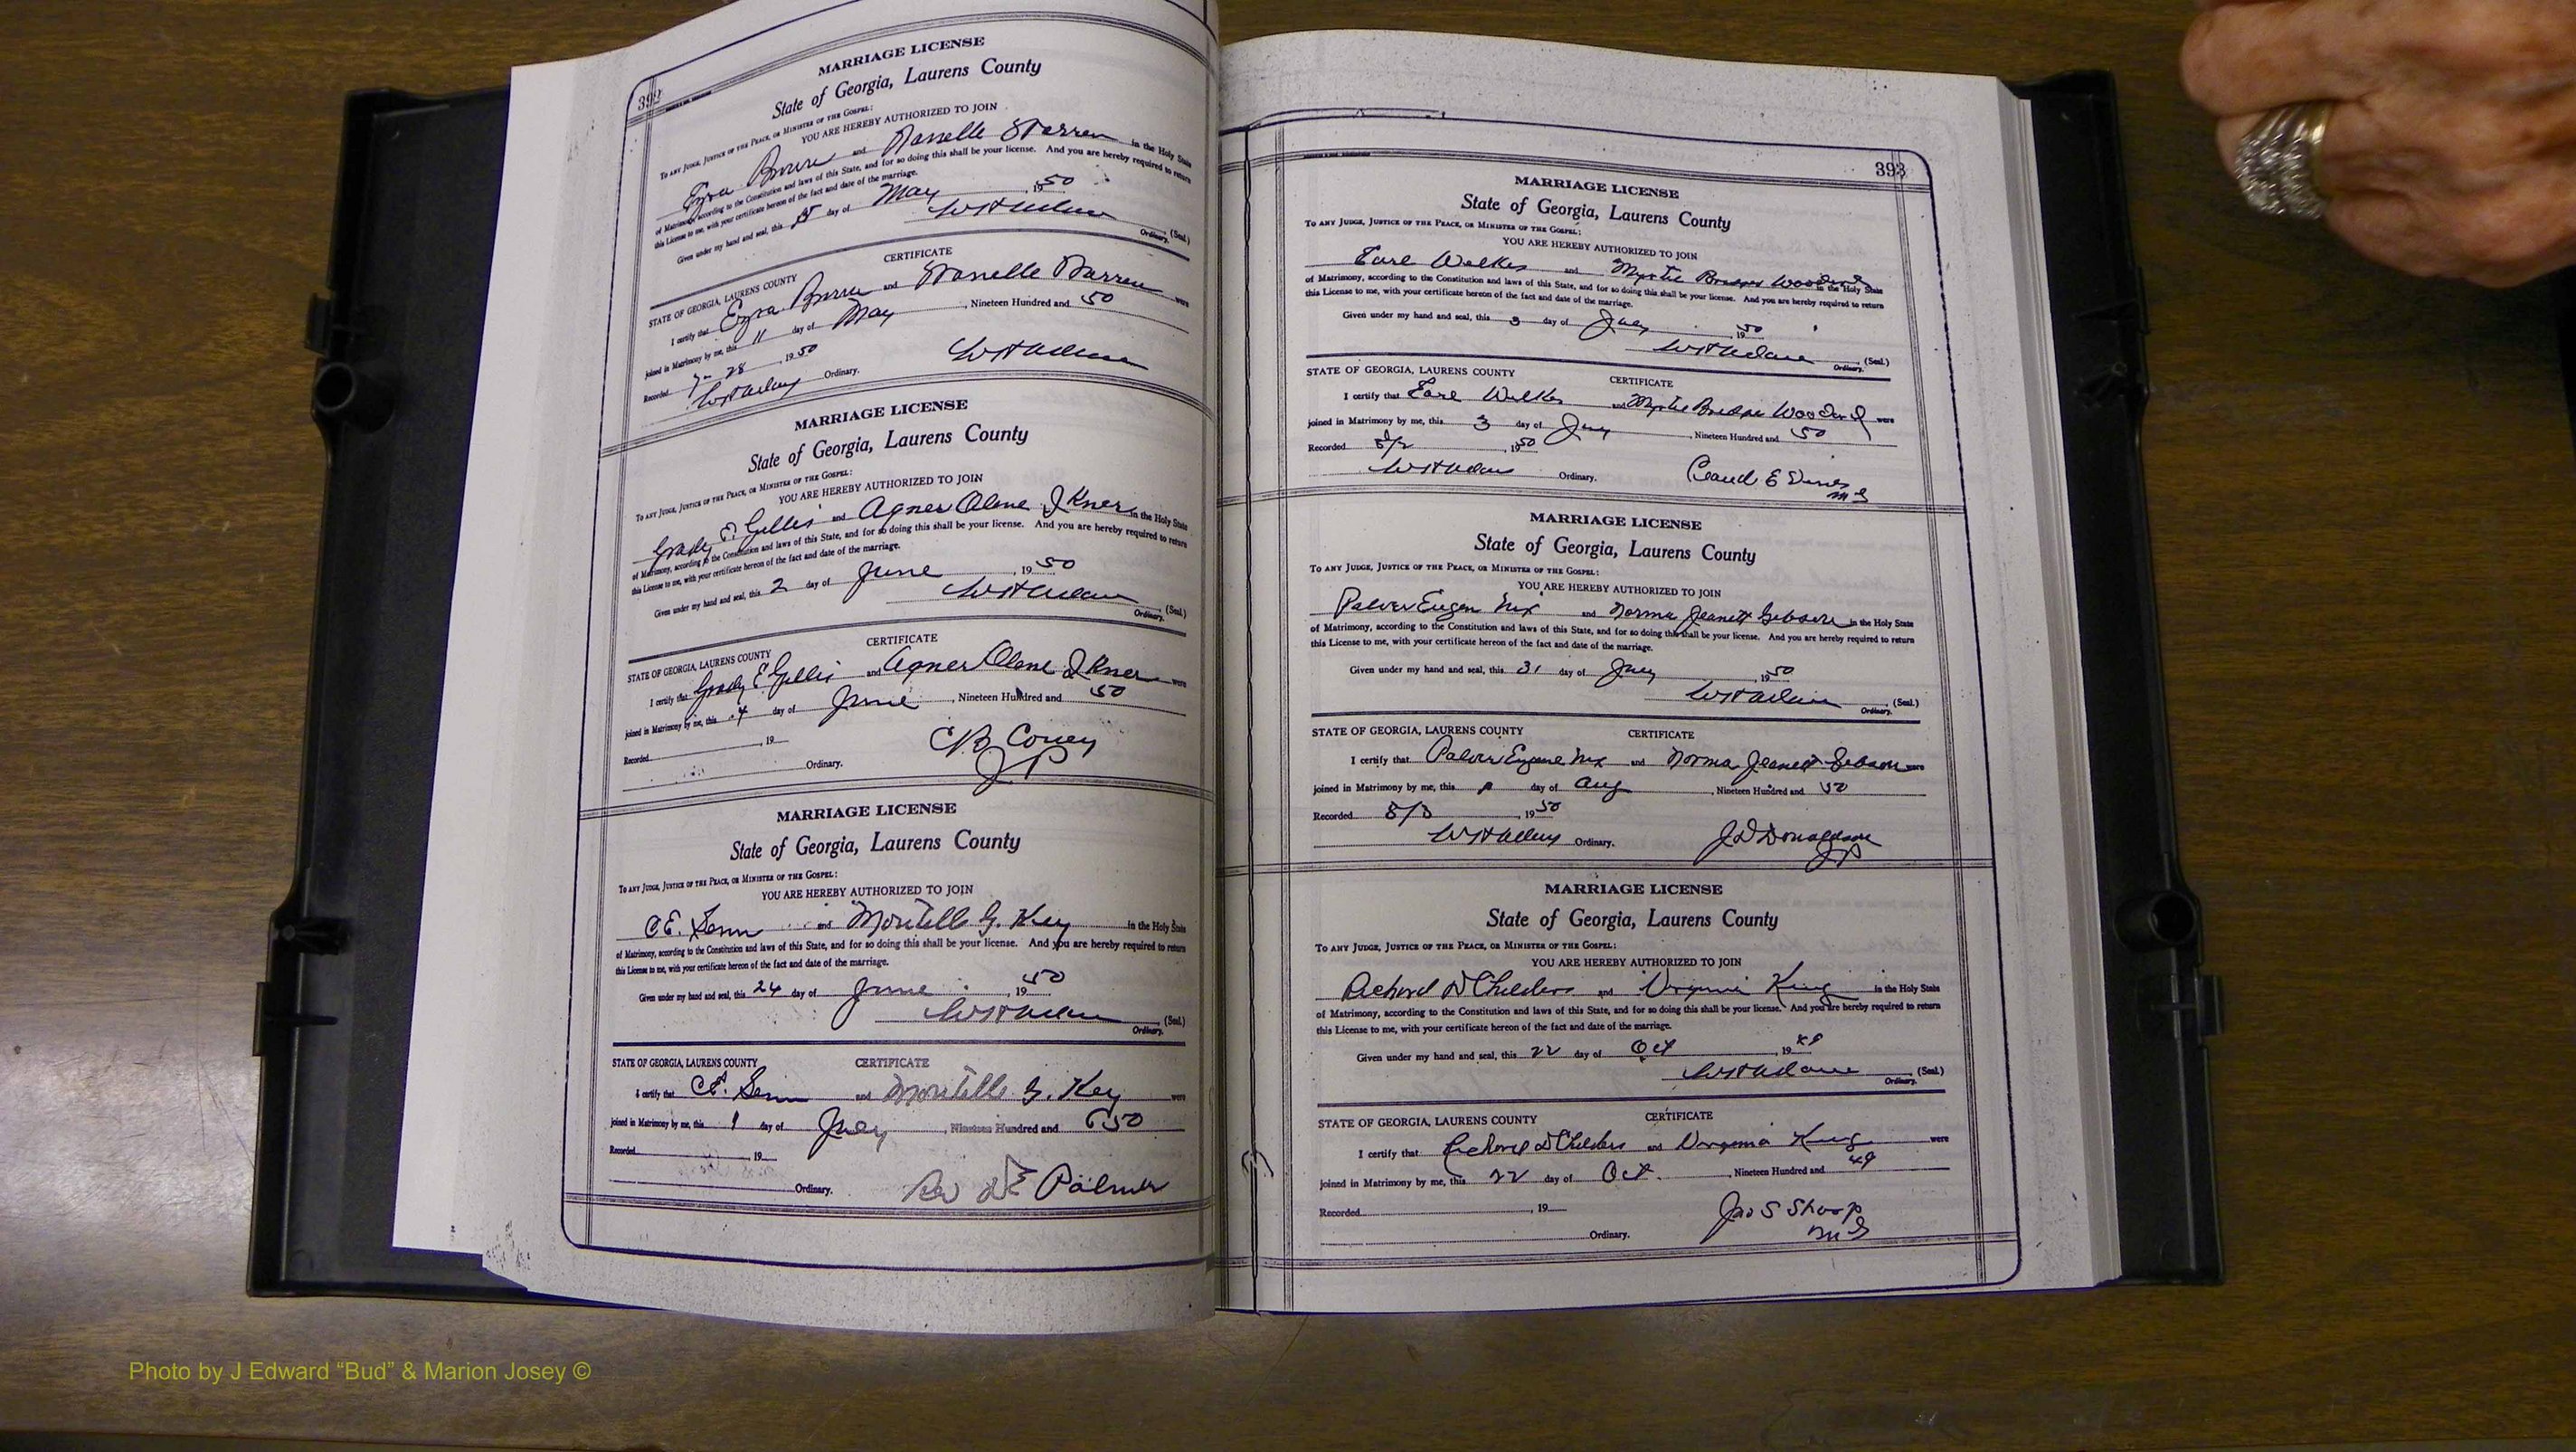 392
MARRIAGE LICENSE
State of Georgia, Laurens County
To any Judge, Justice of the Peace, or Minister of the Gospel:
YOU ARE HEREBY AUTHORIZED TO JOIN
Ezra and Warren in the Holy State
of Matrimony, according to the Constitution and laws of this State, and for so doing this shall be your license. And you are hereby required to return
this License to me, with your certificate hereon of the fact and date of the marriage.
Given under my hand and seal, this day of May, 1950
(Seal.)
Ordinary.
CERTIFICATE
STATE OF GEORGIA, LAURENS COUNTY
I certify that Ezra and Warren were
joined in Matrimony by me, this 11 day of May, Nineteen Hundred and 50
Recorded 28, 1950
Ordinary.
MARRIAGE LICENSE
State of Georgia, Laurens County
To any Judge, Justice of the Peace, or Minister of the Gospel:
YOU ARE HEREBY AUTHORIZED TO JOIN
Grady E. Gillis and Olene in the Holy State
of Matrimony, according to the Constitution and laws of this State, and for so doing this shall be your license. And you are hereby required to return
this License to me, with your certificate hereon of the fact and date of the marriage.
Given under my hand and seal, this 2 day of June, 1950
(Seal.)
Ordinary.
CERTIFICATE
STATE OF GEORGIA, LAURENS COUNTY
I certify that Grady E Gillis and Olene were
joined in Matrimony by me, this 4 day of June, Nineteen Hundred and 50
Recorded, 19
Ordinary.
JP
MARRIAGE LICENSE
State of Georgia, Laurens County
To any Judge, Justice of the Peace, or Minister of the Gospel:
YOU ARE HEREBY AUTHORIZED TO JOIN
C.E. and G. Key in the Holy State
of Matrimony, according to the Constitution and laws of this State, and for so doing this shall be your license. And you are hereby required to return
this License to me, with your certificate hereon of the fact and date of the marriage.
Given under my hand and seal, this 24 day of June, 1950
(Seal.)
Ordinary.
STATE OF GEORGIA, LAURENS COUNTY CERTIFICATE
I certify that C.E. and G. Key were
joined in Matrimony by me, this 1 day of July, Nineteen Hundred and 50
Recorded, 19
Ordinary. Rev Palmer
393
MARRIAGE LICENSE
State of Georgia, Laurens County
To any Judge, Justice of the Peace, or Minister of the Gospel:
YOU ARE HEREBY AUTHORIZED TO JOIN
Earl and in the Holy State
of Matrimony, according to the Constitution and laws of this State, and for so doing this shall be your license. And you are hereby required to return
this License to me, with your certificate hereon of the fact and date of the marriage.
Given under my hand and seal, this 3 day of July 1950
(Seal.)
Ordinary.
STATE OF GEORGIA, LAURENS COUNTY CERTIFICATE
I certify that Earl and were
joined in Matrimony by me, this 3 day of July, Nineteen Hundred and 50
Recorded 8/2, 1950
Ordinary. Claud E
MG
MARRIAGE LICENSE
State of Georgia, Laurens County
To any Judge, Justice of the Peace, or Minister of the Gospel:
YOU ARE HEREBY AUTHORIZED TO JOIN
Nix and Norma Jeanett in the Holy State
of Matrimony, according to the Constitution and laws of this State, and for so doing this shall be your license. And you are hereby required to return
this License to me, with your certificate hereon of the fact and date of the marriage.
Given under my hand and seal, this 31 day of July, 1950
(Seal.)
Ordinary.
STATE OF GEORGIA, LAURENS COUNTY CERTIFICATE
I certify that Eugene Nix and Norma Jeanett were
joined in Matrimony by me, this day of Aug, Nineteen Hundred and 50
Recorded, 1950
Ordinary. J D Donaldson
JP
MARRIAGE LICENSE
State of Georgia, Laurens County
To any Judge, Justice of the Peace, or Minister of the Gospel:
YOU ARE HEREBY AUTHORIZED TO JOIN
Richard D Childers and Virginia King in the Holy State
of Matrimony, according to the Constitution and laws of this State, and for so doing this shall be your license. And you are hereby required to return
this License to me, with your certificate hereon of the fact and date of the marriage.
Given under my hand and seal, this 22 day of Oct, 1949
(Seal.)
Ordinary.
STATE OF GEORGIA, LAURENS COUNTY CERTIFICATE
I certify that Richard D Childers and Virginia King were
joined in Matrimony by me, this 22 day of Oct., Nineteen Hundred and 49
Recorded, 19
Jno S Sharp
Ordinary. MG
Photo by J Edward “Bud” & Marion Josey ©